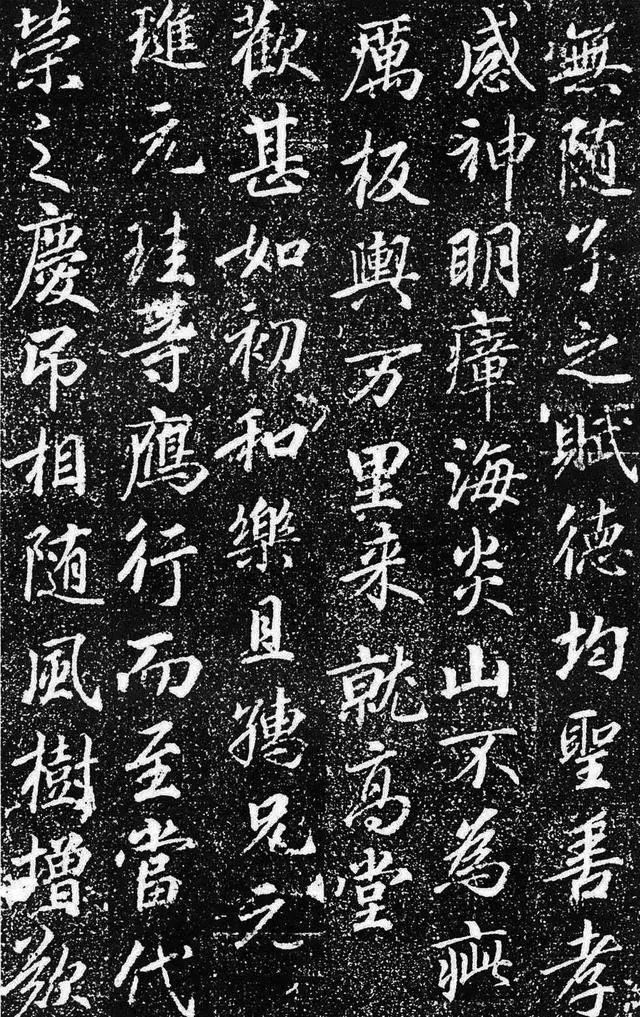 無隨子之賦德均聖善孝
感神明瘴海炎山不為疵
癘板輿万里来就高堂
歡甚如初和樂且孺兄元
琎元珪等鴈行而至當代
榮之慶吊相随風樹增歎